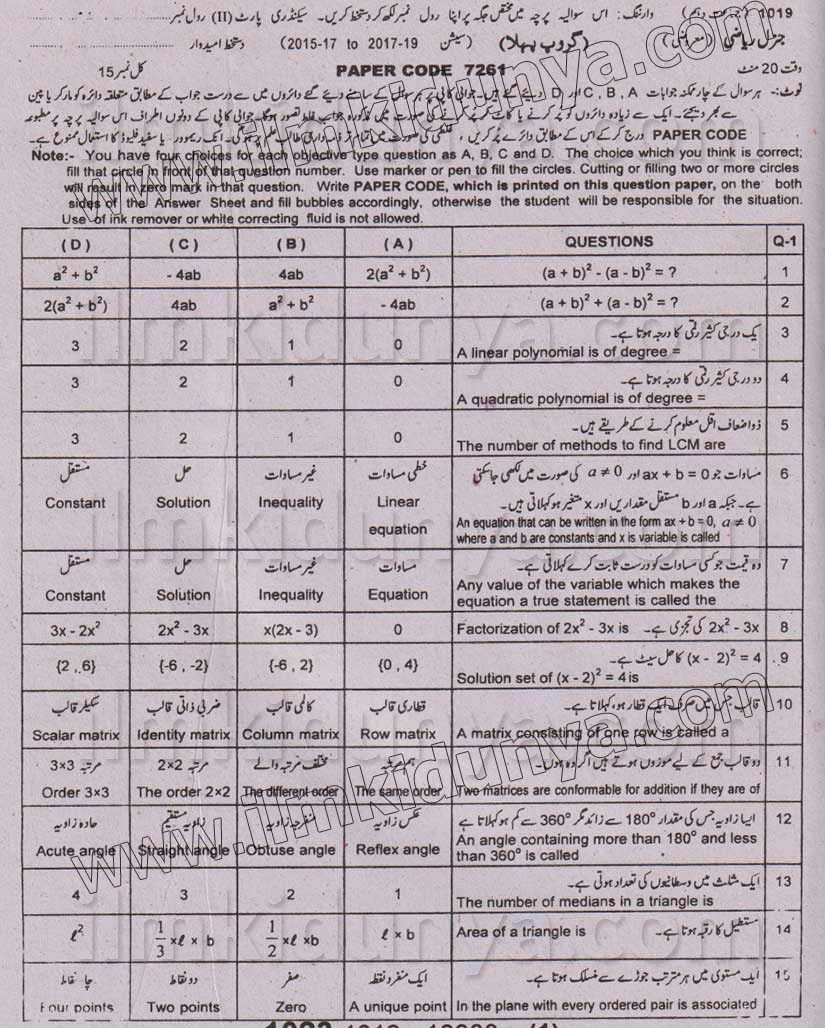 1019 (جماعت دہم) وارننگ: اس سوالیہ پرچہ میں مختص جگہ پر اپنا رول نمبر لکھ کر دستخط کریں۔ سیکنڈری پارٹ (II) رول نمبر
جنرل ریاضی (معروضی) (گروپ پہلا) (سیشن 2015-17 to 2017-19) دستخط امیدوار
وقت 20 منٹ PAPER CODE 7261 کل نمبر 15
نوٹ:- ہر سوال کے چار ممکنہ جوابات A ,B ,C اور D دیئے گئے ہیں۔ جوابی کاپی پر ہر سوال کے سامنے دیئے گئے دائروں میں سے درست جواب کے مطابق متعلقہ دائرہ کو مارکر یا پین
سے بھر دیجئے۔ ایک سے زیادہ دائروں کو پُر کرنے یا کاٹ کر پُر کرنے کی صورت میں مذکورہ جواب غلط تصور ہوگا۔ جوابی کاپی کے دونوں اطراف اس سوالیہ پرچہ پر مطبوعہ
PAPER CODE درج کر کے اس کے مطابق دائرے پُر کریں، غلطی کی صورت میں تمام تر ذمہ داری طالب علم پر ہوگی۔ انک ریموور یا سفید فلیوڈ کا استعمال ممنوع ہے۔
Note:- You have four choices for each objective type question as A, B, C and D. The choice which you think is correct;
fill that circle in front of that question number. Use marker or pen to fill the circles. Cutting or filling two or more circles
will result in zero mark in that question. Write PAPER CODE, which is printed on this question paper, on the both
sides of the Answer Sheet and fill bubbles accordingly, otherwise the student will be responsible for the situation.
Use of ink remover or white correcting fluid is not allowed.
( D ) ( C ) ( B ) ( A ) QUESTIONS Q-1
a² + b² - 4ab 4ab 2(a² + b²) (a + b)² - (a - b)² = ? 1
2(a² + b²) 4ab a² + b² - 4ab (a + b)² + (a - b)² = ? 2
یک درجی کثیر رقمی کا درجہ ہوتا ہے۔ 3
3 2 1 0 A linear polynomial is of degree =
دو درجی کثیر رقمی کا درجہ ہوتا ہے۔ 4
3 2 1 0 A quadratic polynomial is of degree =
ذواضعاف اقل معلوم کرنے کے طریقے ہیں۔ 5
3 2 1 0 The number of methods to find LCM are
مستقل حل غیر مساوات خطی مساوات مساوات جو ax + b = 0 اور a ≠ 0 کی صورت میں لکھی جا سکتی 6
Constant Solution Inequality Linear equation ہے۔ جبکہ a اور b مستقل مقداریں اور x متغیر ہو کہلاتی ہیں۔
An equation that can be written in the form ax + b = 0, a ≠ 0
where a and b are constants and x is variable is called
مستقل حل غیر مساوات مساوات وہ قیمت جو کسی مساوات کو درست ثابت کرے کہلاتی ہے۔ 7
Constant Solution Inequality Equation Any value of the variable which makes the
equation a true statement is called the
3x - 2x² 2x² - 3x x(2x - 3) 0 Factorization of 2x² - 3x is 2x² - 3x کی تجزی ہے۔ 8
{2 , 6} {-6 , -2} {-6 , 2} {0 , 4} (x - 2)² = 4 کا حل سیٹ ہے۔ 9
Solution set of (x - 2)² = 4 is
سکیلر قالب ضربی ذاتی قالب کالمی قالب قطاری قالب قالب جس میں صرف ایک قطار ہو، کہلاتا ہے۔ 10
Scalar matrix Identity matrix Column matrix Row matrix A matrix consisting of one row is called a
مرتبہ 3×3 مرتبہ 2×2 مختلف مرتبہ والے ہم مرتبہ دو قالب جمع کے لیے موزوں ہوتے ہیں اگر وہ ہوں۔ 11
Order 3×3 The order 2×2 The different order The same order Two matrices are conformable for addition if they are of
حادہ زاویہ زاویہ مستقیم منفرجہ زاویہ عکس زاویہ ایسا زاویہ جس کی مقدار 180° سے زائد مگر 360° سے کم ہو کہلاتا ہے 12
Acute angle Straight angle Obtuse angle Reflex angle An angle containing more than 180° and less
than 360° is called
ایک مثلث میں وسطانیوں کی تعداد ہوتی ہے۔ 13
4 3 2 1 The number of medians in a triangle is
ℓ² 1/3 ×ℓ × b 1/2 ×ℓ ×b ℓ × b Area of a triangle is مستطیل کا رقبہ ہوتا ہے۔ 14
چار نقاط دو نقاط صفر ایک منفرد نقطہ ایک مستوی میں ہر مترتب جوڑے سے منسلک ہوتا ہے۔ 15
Four points Two points Zero A unique point In the plane with every ordered pair is associated
www.ilmkidunya.com